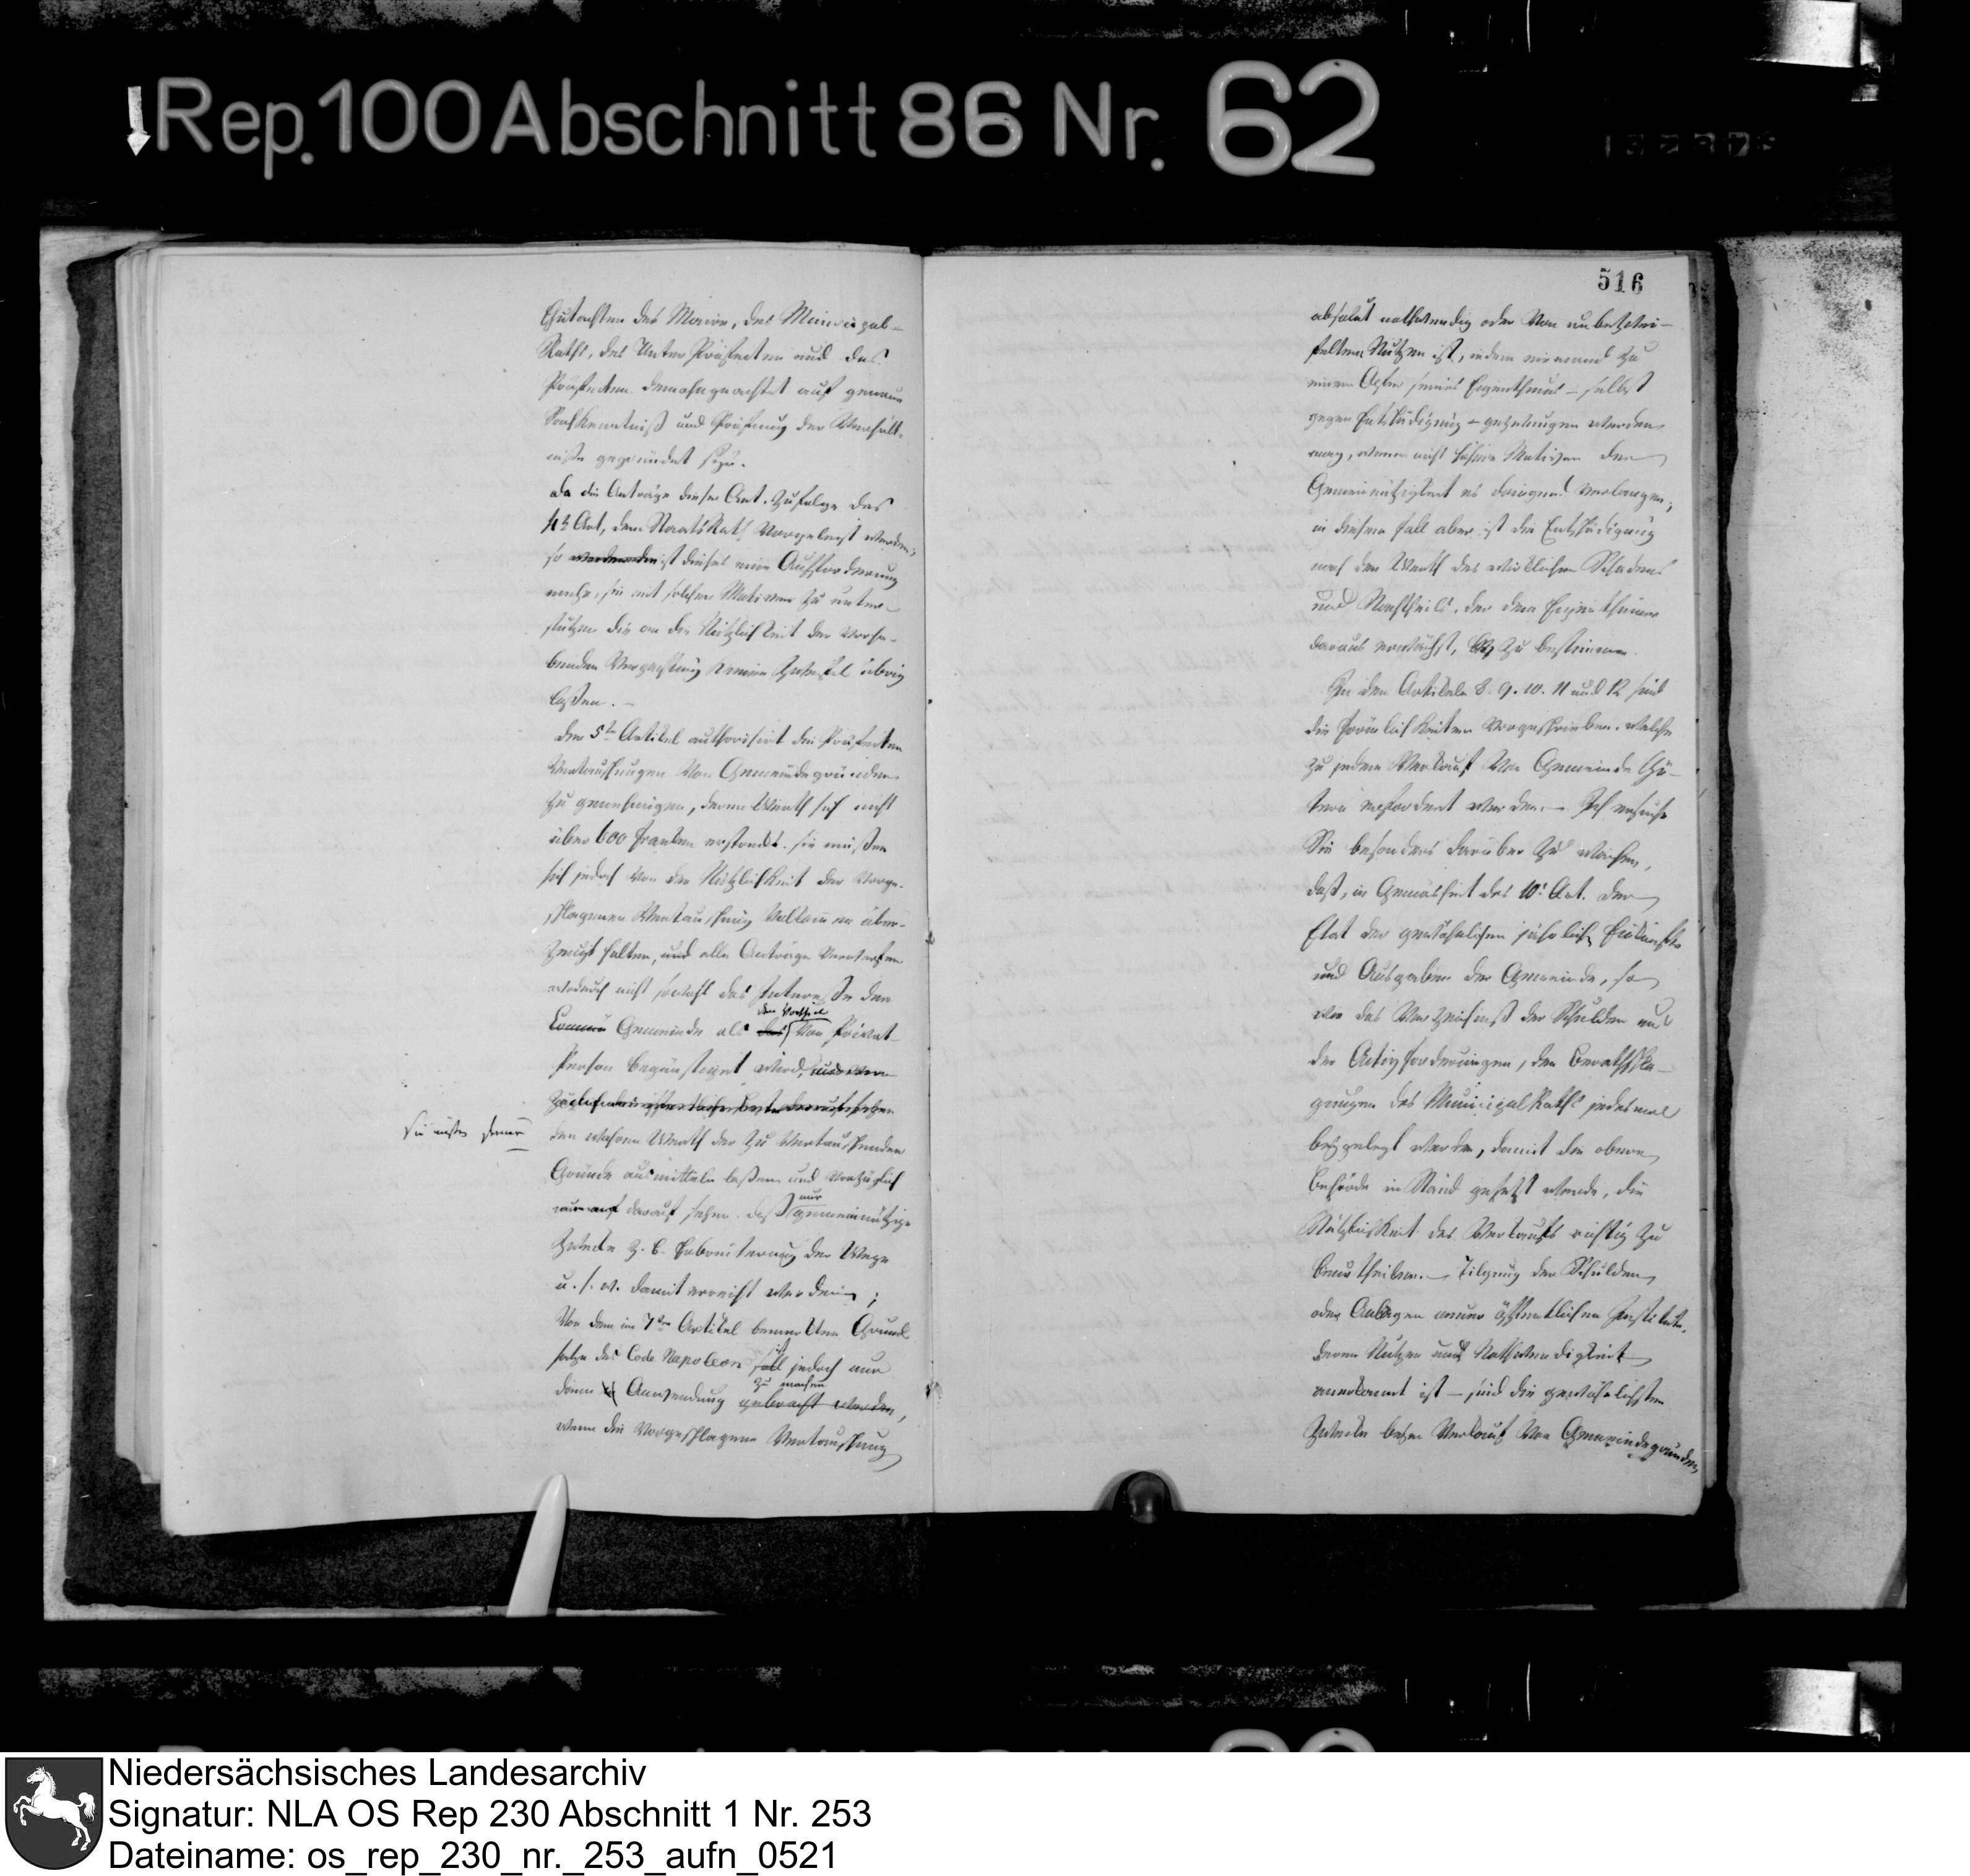 Rep. 100 Abschnitt 86 Nr. 62
Gutachten des Maire, des Municipal-
Raths, des Unter Präfecten und des
Präfecten demohngeachtet auf genaue
Sachkenntniß und Prüfung der Verhält-
niße gegründet seyn.
da die Anträge dieser Art. zufolge des
4t Art, dem StaatsRath vorgelegt werden,
so ist dieses eine Aufforderung
mehr, sie mit solchen Motiven zu unter-
stützen die an der Nützlichkeit der vorha-
benden Verpachtung keinen Zweifel übrig
laßen. -
Der 5te Artikel authorisirt die Präfecten
Vertauschungen von Gemeindegründen
zu genehmigen, deren Werth sich nicht
über 600 Franken erstreckt. sie müßen
sich jedoch von der Nützlichkeit der vorge-
schlagenen Vertauschung vollkommen über-
zeugt halten, und alle Anträge verwerfen
wodurch nicht sowohl das Interesse der
Commun Gemeinde als das der Vortheil von Privat-
Person begünstiget wird,
Sie müßen ferner
den wahren Werth der zu vertauschenden
Gründe ausmitteln laßen und vorzüglich
darauf sehen, daß nur gemeinnützige
Zwecke z. B. Erbreiterung der Wege
u. s. w. damit erreicht werden;
Von dem im 7ten Artikel bemerkten Grund-
satze des Code Napoleon soll ist jedoch nur
dann Anwendung gebracht werden, zu machen
wenn die vorgeschlagene Vertauschung
516
absolut nothwendig oder von unbezwei-
felten Nutzen ist, indem niemand zu
einem Opfer seines Eigenthums - selbst
gegen Entschädigung - gezwungen werden
mag, wenn nicht höhere Motiven der
Gemeinnützigkeit es dringend verlangen;
in diesem Fall aber ist die Entschädigung
nach dem Werth des wirklichen Schadens
und Nachtheils, der dem Eigenthümer
daraus erwächst, zu bestimmen.
In den Artikeln 8. 9. 10. 11 und 12 sind
die Förmlichkeiten vorgeschrieben, welche
zu jedem Verkauf von Gemeinde Gü-
tern erfordert werden. - Ich ersuche
Sie besonders darüber zu wachen,
daß, in Gemäsheit des 10t Art. der
Etat der gewöhnlichen jährlichen Einkünfte
und Ausgaben der Gemeinde, so
wie das Verzeichniß der Schulden und
der Activforderungen, den Berathschla-
gungen des MunicipalRaths jedesmal
beygelegt werden, damit die obere
Behörde in Stand gesetzt werde, die
Nützlichkeit des Verkaufs richtig zu
beurtheilen. - Tilgung der Schulden
oder Anlagen neuer öffentlichen Institute,
deren Nutzen und Nothwendigkeit
anerkannt ist - sind die gewöhnlichsten
Zwecke beym Verkauf von Gemeindegründen
Niedersächsisches Landesarchiv
Signatur: NLA OS Rep 230 Abschnitt 1 Nr. 253
Dateiname: os_rep_230_nr._253_aufn_0521